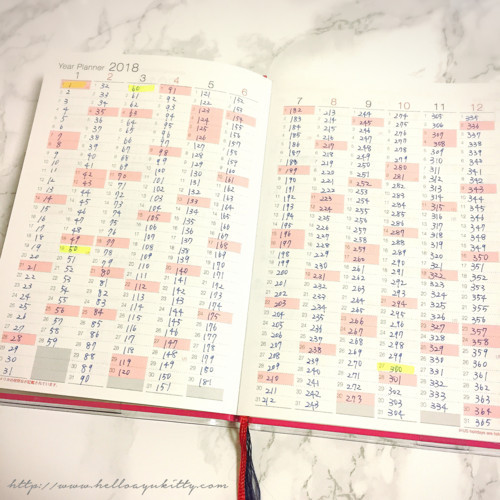 Year Planner 2018
1 2 3 4 5 6
1 32 60 91 121 152
2 33 61 92 122 153
3 34 62 93 123 154
4 35 63 94 124 155
5 36 64 95 125 156
6 37 65 96 126 157
7 38 66 97 127 158
8 39 67 98 128 159
9 40 68 99 129 160
10 41 69 100 130 161
11 42 70 101 131 162
12 43 71 102 132 163
13 44 72 103 133 164
14 45 73 104 134 165
15 46 74 105 135 166
16 47 75 106 136 167
17 48 76 107 137 168
18 49 77 108 138 169
19 50 78 109 139 170
20 51 79 110 140 171
21 52 80 111 141 172
22 53 81 112 142 173
23 54 82 113 143 174
24 55 83 114 144 175
25 56 84 115 145 176
26 57 85 116 146 177
27 58 86 117 147 178
28 59 87 118 148 179
29 88 119 149 180
30 89 120 150 181
31 90 151
7 8 9 10 11 12
182 213 244 274 305 335
183 214 245 275 306 336
184 215 246 276 307 337
185 216 247 277 308 338
186 217 248 278 309 339
187 218 249 279 310 340
188 219 250 280 311 341
189 220 251 281 312 342
190 221 252 282 313 343
191 222 253 283 314 344
192 223 254 284 315 345
193 224 255 285 316 346
194 225 256 286 317 347
195 226 257 287 318 348
196 227 258 288 319 349
197 228 259 289 320 350
198 229 260 290 321 351
199 230 261 291 322 352
200 231 262 292 323 353
201 232 263 293 324 354
202 233 264 294 325 355
203 234 265 295 326 356
204 235 266 296 327 357
205 236 267 297 328 358
206 237 268 298 329 359
207 238 269 299 330 360
208 239 270 300 331 361
209 240 271 301 332 362
210 241 272 302 333 363
211 242 273 303 334 364
212 243 304 365
http://www.helloayukitty.com